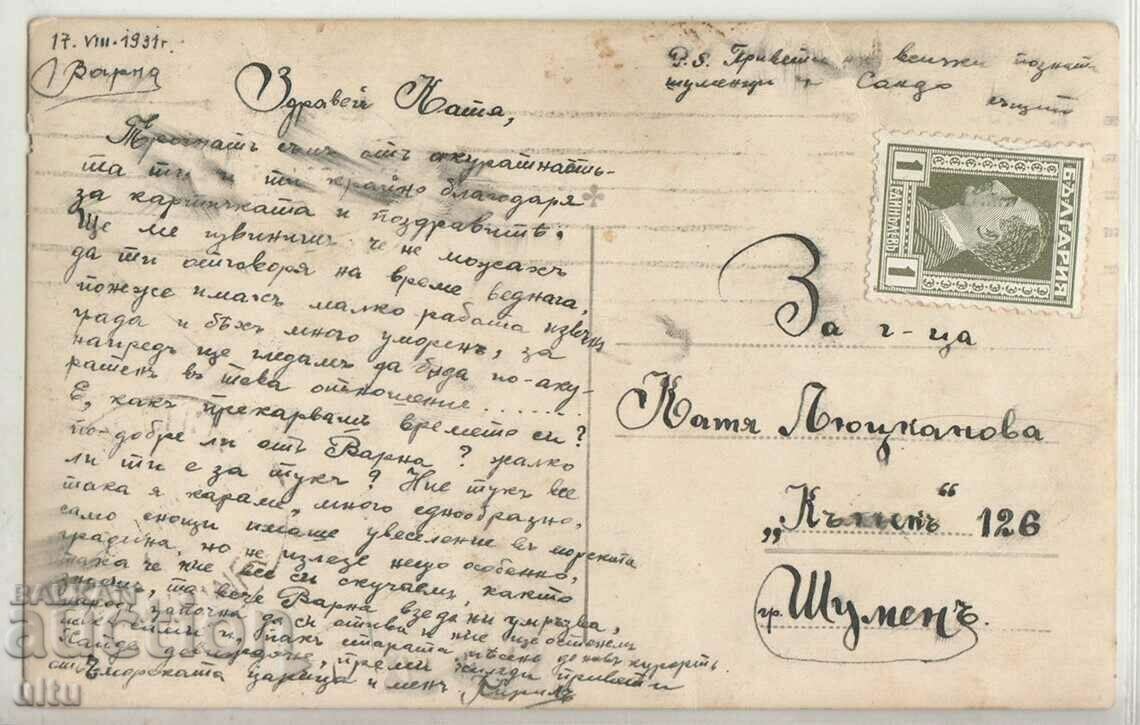 17. VIII. 1931 г.
Варна
P.S. Привети на всички познати
шуменци и Сандо
същит
Здравей Катя,
Трогнатъ съмъ отъ акуратностьта
та ти и ти крайно благодаря
за картичката и поздравитѣ.
Ще ме извинишъ че не можахъ
да ти отговоря на време веднага,
понеже имахъ малко работа извънъ
града и бѣхъ много уморенъ, за
напредъ ще гледамъ да бѫда по-аку-
ратенъ въ това отношение......
Е, какъ прекарвашъ времето си?
по-добре ли отъ Варна? жалко
ли ти е за тукъ? Ние тукъ все
така я караме, много еднообразно,
само снощи имаше увеселение въ морската
градина, но не излезе нещо особенно,
така че ние все си скучаемъ, както
знаешъ, та вече Варна взе да ни омръзва,
народъ започна да си отива и ние ще останемъ
и пакъ старата пѣсень до новъ курортъ.
Хайде довиждане, приеми хиляди привети
отъ морската царица и менъ Кирилъ
БЪЛГАРИЯ
1 1
СТОТИНКИ
За г-ца
Катя Люцканова
„Къпекъ“ 126
гр. Шуменъ.
BALKAN
auction
ültu